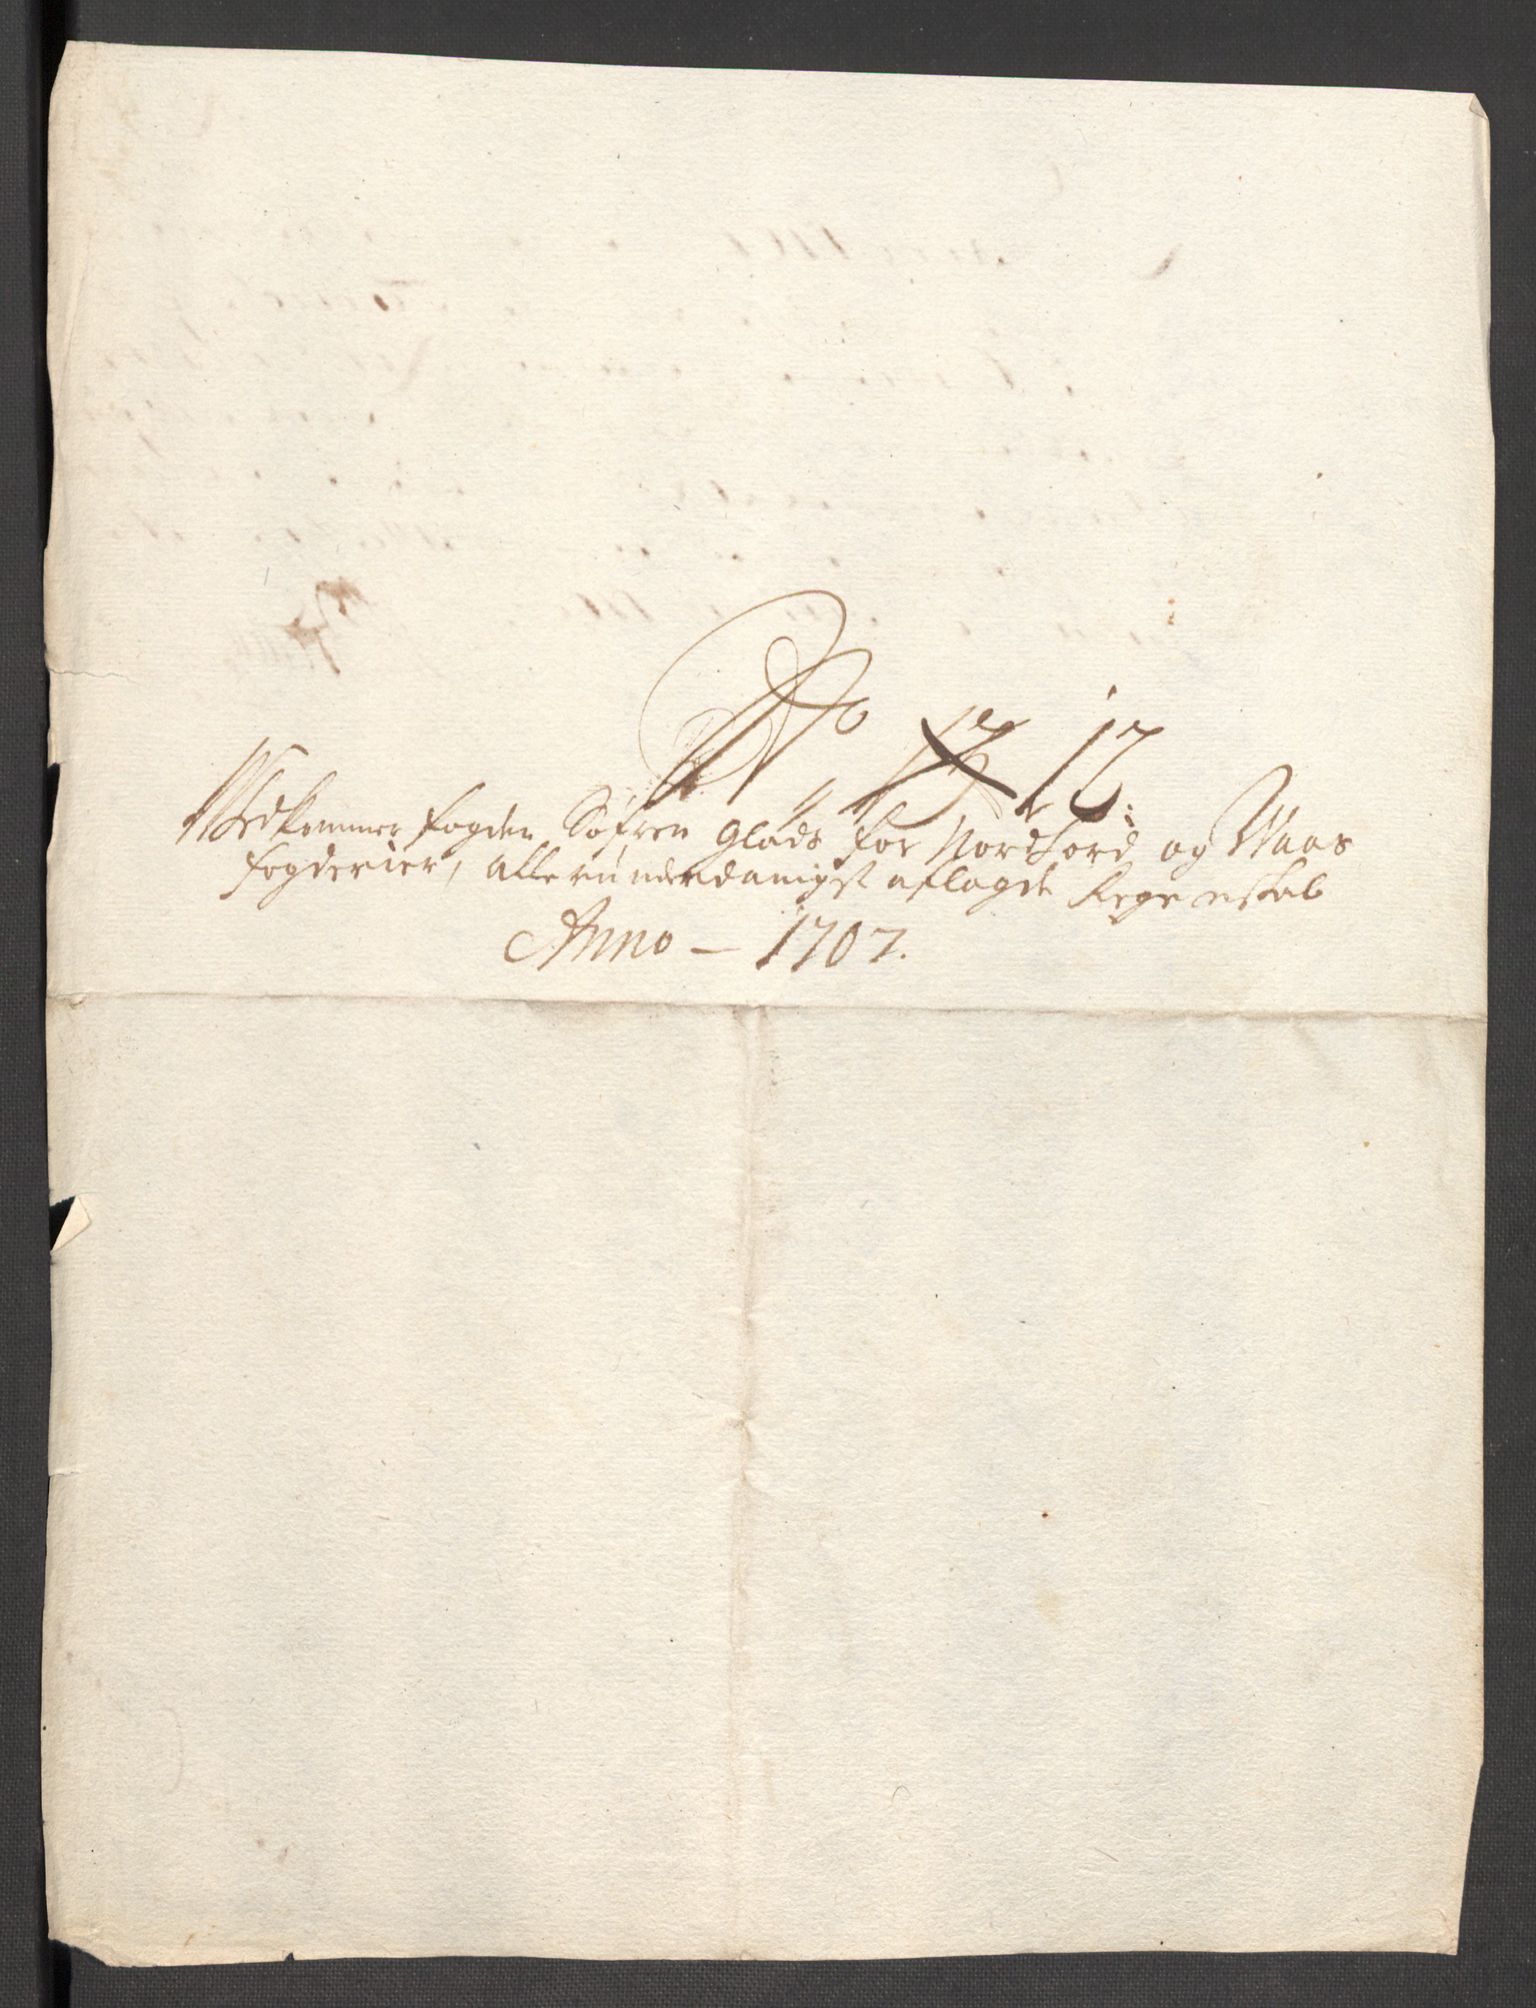 No 12
Vedkommer fogden Søfren Glads for Nordfiord og Waas
fogderier, allerunderdanigst aflagde Regenskab
Anno — 1707.